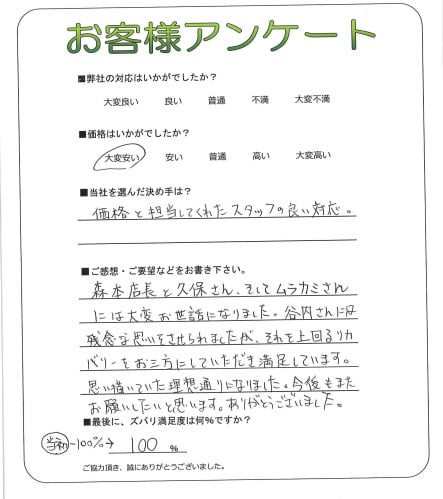 お客様アンケート
■弊社の対応はいかがでしたか？
大変良い 良い 普通 不満 大変不満
■価格はいかがでしたか？
大変安い 安い 普通 高い 大変高い
■当社を選んだ決め手は？
価格と担当してくれたスタッフの良い対応。
■ご感想・ご要望などをお書き下さい。
森本店長と久保さん、そしてムラカミさん
には大変お世話になりました。谷内さんには
残念な思いをさせられましたが、それを上回るリカ
バリーをお三方にしていただき満足しています。
思い描いていた理想通りになりました。今後もまた
お願いしたいと思います。ありがとうございました。
■最後に、ズバリ満足度は何％ですか？
当初-100%→ 100 %
ご協力頂き、誠にありがとうございました。